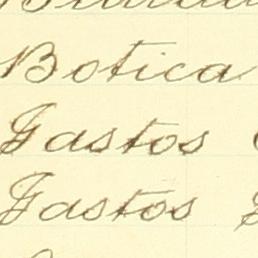 Botica
Gastos
Gastos